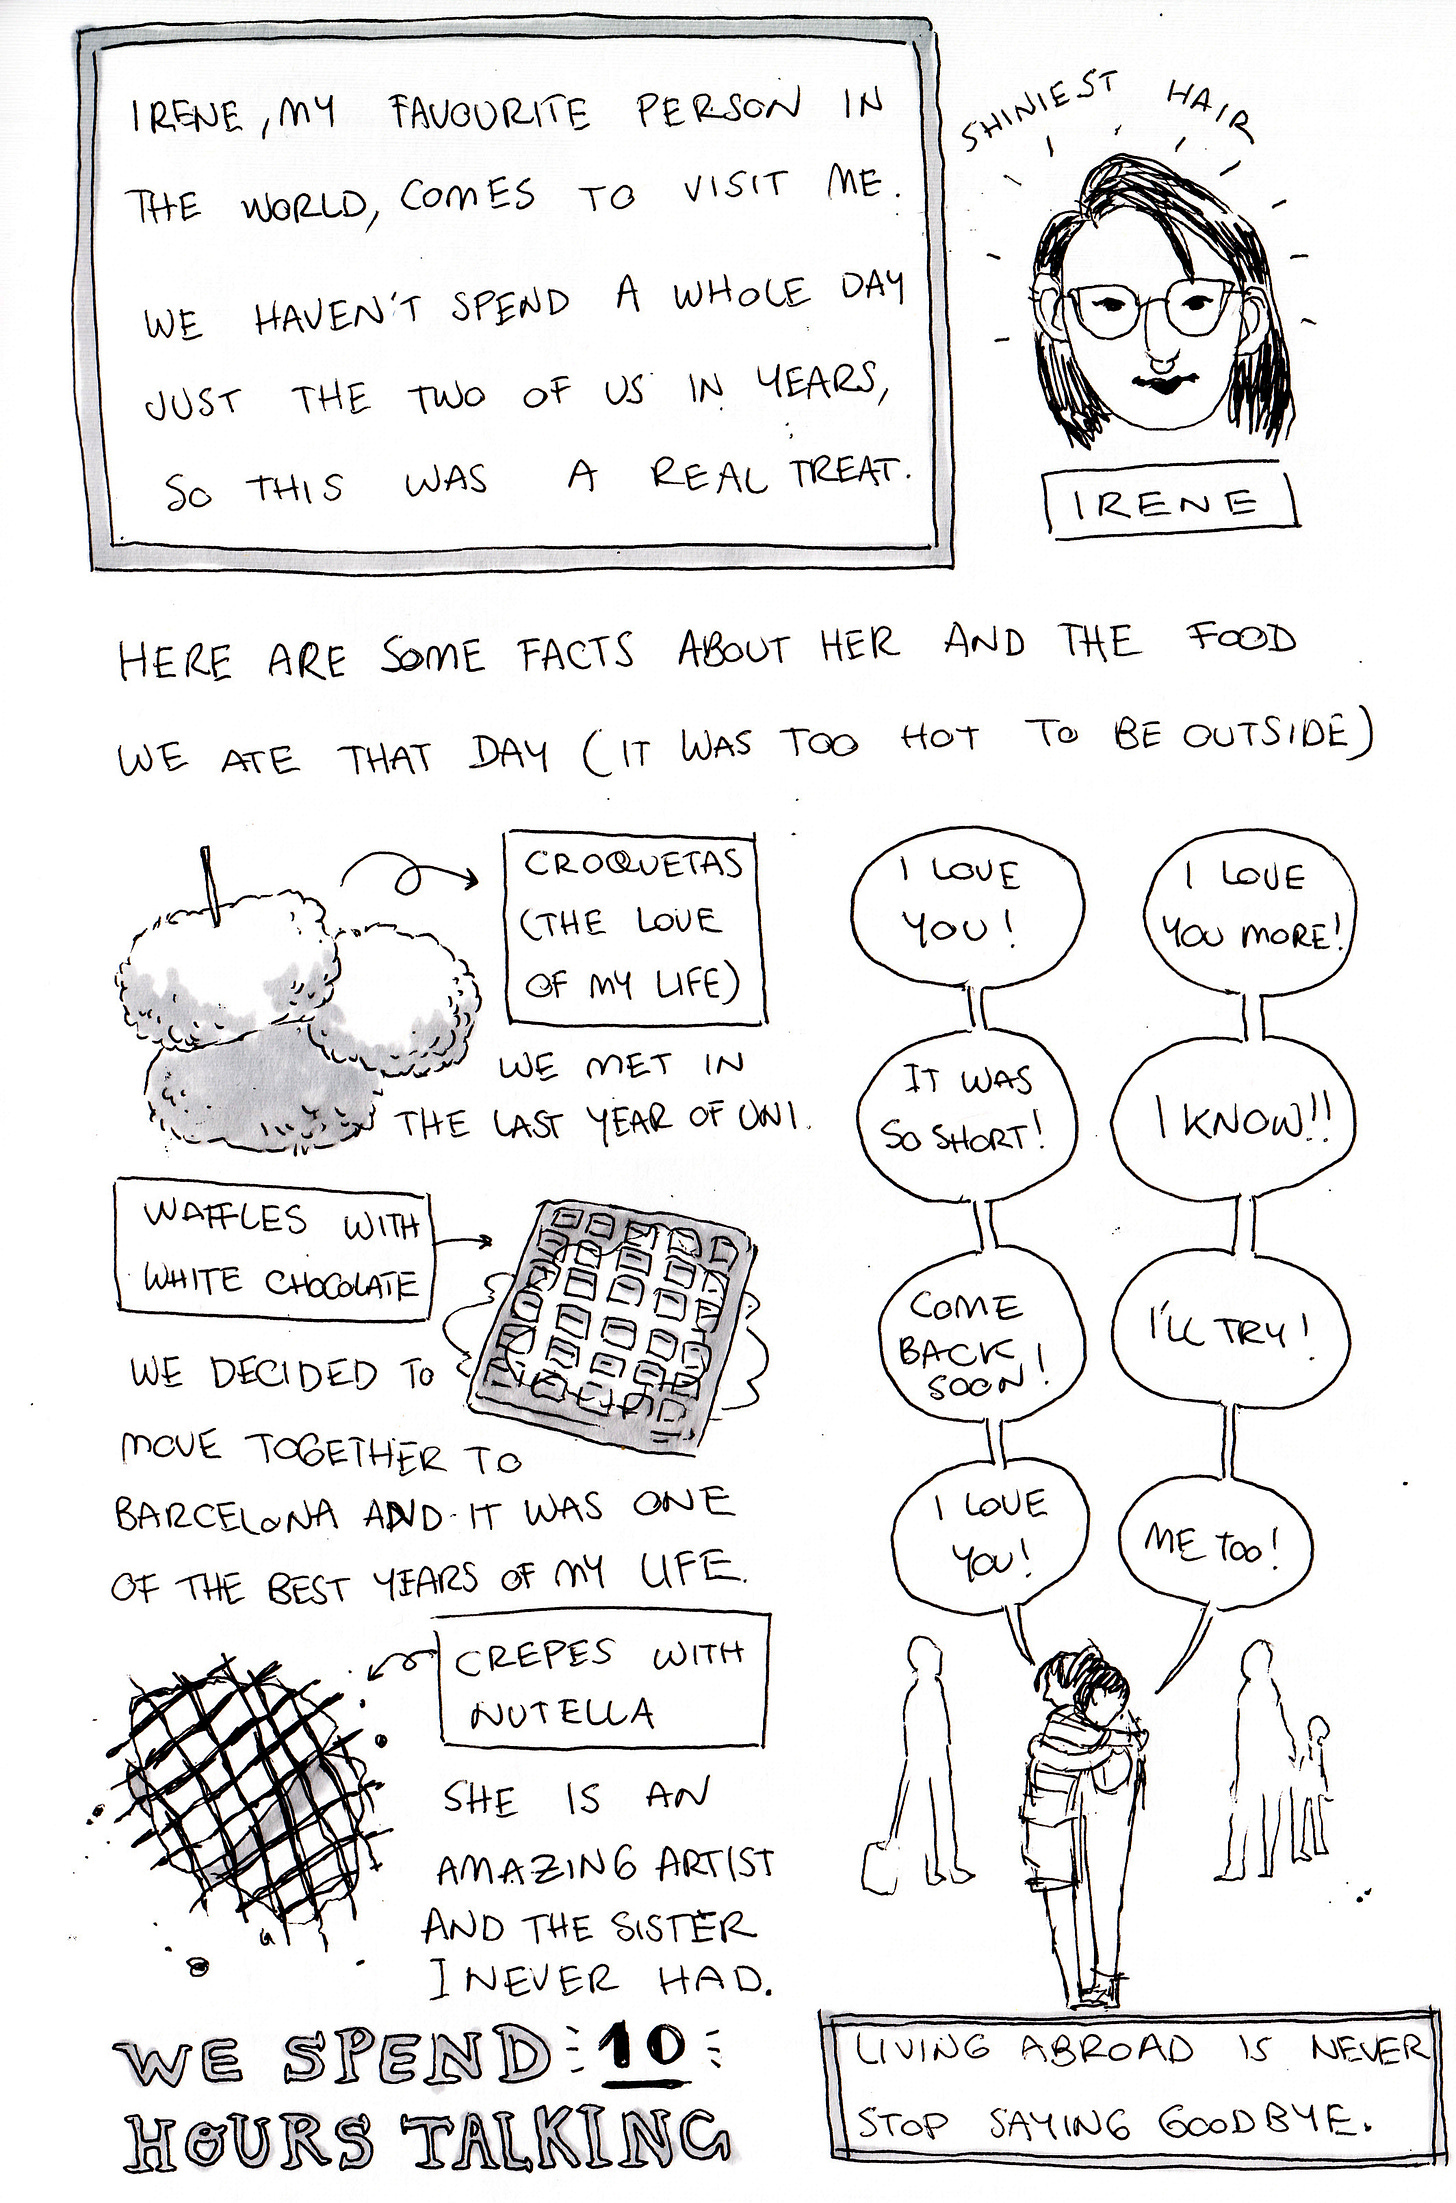 IRENE, MY FAVOURITE PERSON IN
THE WORLD, COMES TO VISIT ME.
WE HAVEN'T SPEND A WHOLE DAY
JUST THE TWO OF US IN YEARS,
SO THIS WAS A REAL TREAT.
SHINIEST HAIR
IRENE
HERE ARE SOME FACTS ABOUT HER AND THE FOOD
WE ATE THAT DAY (IT WAS TOO HOT TO BE OUTSIDE)
CROQUETAS
(THE LOVE
OF MY LIFE)
WE MET IN
THE LAST YEAR OF UNI.
WAFFLES WITH
WHITE CHOCOLATE
WE DECIDED TO
MOVE TOGETHER TO
BARCELONA AND IT WAS ONE
OF THE BEST YEARS OF MY LIFE.
CREPES WITH
NUTELLA
SHE IS AN
AMAZING ARTIST
AND THE SISTER
I NEVER HAD.
WE SPEND 10
HOURS TALKING
I LOVE
YOU!
I LOVE
YOU MORE!
IT WAS
SO SHORT!
I KNOW!!
COME
BACK
SOON!
I'LL TRY!
I LOVE
YOU!
ME TOO!
LIVING ABROAD IS NEVER
STOP SAYING GOODBYE.